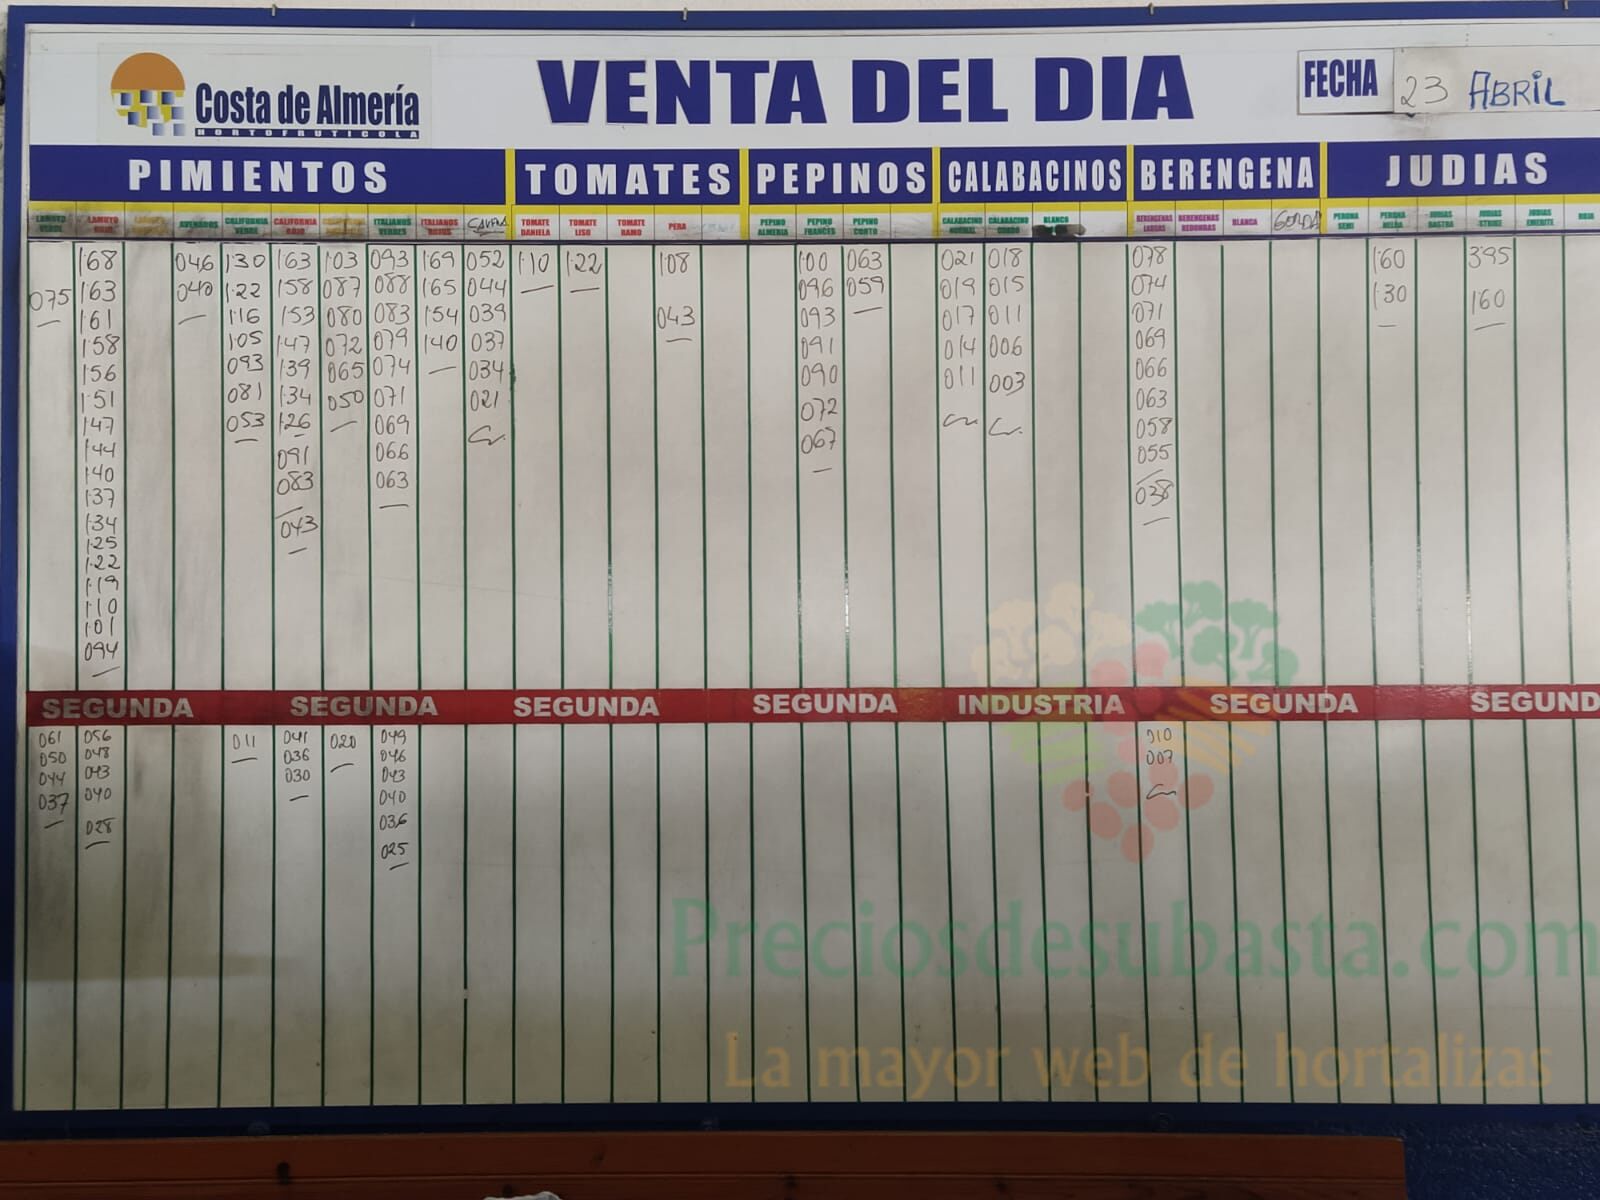 Costa de Almería
HORTOFRUTICOLA
VENTA DEL DIA
FECHA 23 ABRIL
PIMIENTOS TOMATES PEPINOS CALABACINOS BERENGENA JUDIAS
LAMUYO VERDE LAMUYO ROJO ASENADOS CALIFORNIA VERDE CALIFORNIA ROJO ITALIANOS VERDES ITALIANOS ROJOS TOMATE DANIELA TOMATE LISO TOMATE RAMO PERA PEPINO ALMERIA PEPINO FRANCES PEPINO CORTO CALABACINO NORMAL CALABACINO GORDO BLANCO BERENGENAS LARGAS BERENGENAS REDONDAS BLANCA GORDA PERONA SEMI PERONA HELDA JUDIAS RASTRA JUDIAS STRIKE JUDIAS EMERITE ROJA
1·68 046 1·30 1·63 1·03 093 1·69 052 1·10 1·22 1·08 1·00 063 021 018 078 1·60 395
075 1·63 040 1·22 1·58 087 088 1·65 044 096 059 019 015 074 1·30 1·60
1·61 1·16 1·53 080 083 1·54 039 043 093 017 011 071
1·58 1·05 1·47 072 079 1·40 037 091 014 006 069
1·56 093 1·39 065 074 034 090 011 003 066
1·51 081 1·34 050 071 021 072 063
1·47 053 1·26 069 067 058
1·44 091 066 055
1·40 083 063 038
1·37
1·34 043
1·25
1·22
1·19
1·10
1·01
094
SEGUNDA SEGUNDA SEGUNDA SEGUNDA INDUSTRIA SEGUNDA SEGUND
061 056 011 041 020 049 010
050 048 036 046 007
044 043 030 043
037 040 040
028 036
025
Preciosdesubasta.com
La mayor web de hortalizas